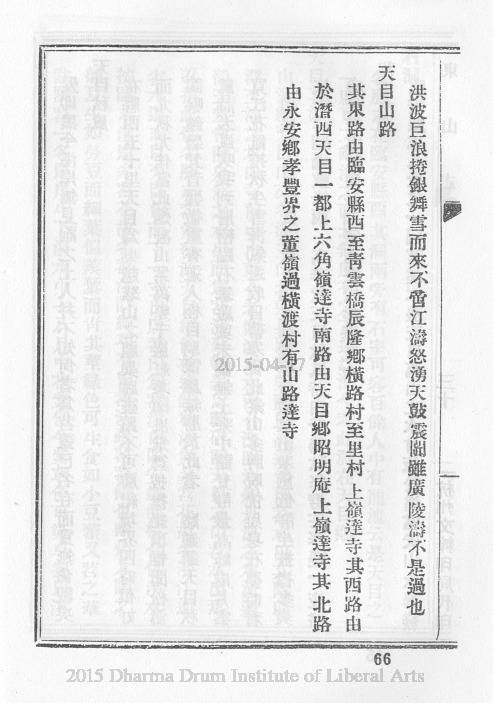 洪波巨浪捲銀舞雪而來不啻江濤怒湧天鼓震闐雖廣陵濤不是過也
天目山路
其東路由臨安縣西至青雲橋辰隆鄉橫路村至里村上嶺達寺其西路由
於潛西天目一都上六角嶺達寺南路由天目鄉昭明庵上嶺達寺其北路
由永安鄉孝豐界之董嶺過橫渡村有山路達寺
66
2015 Dharma Drum Institute of Liberal Arts